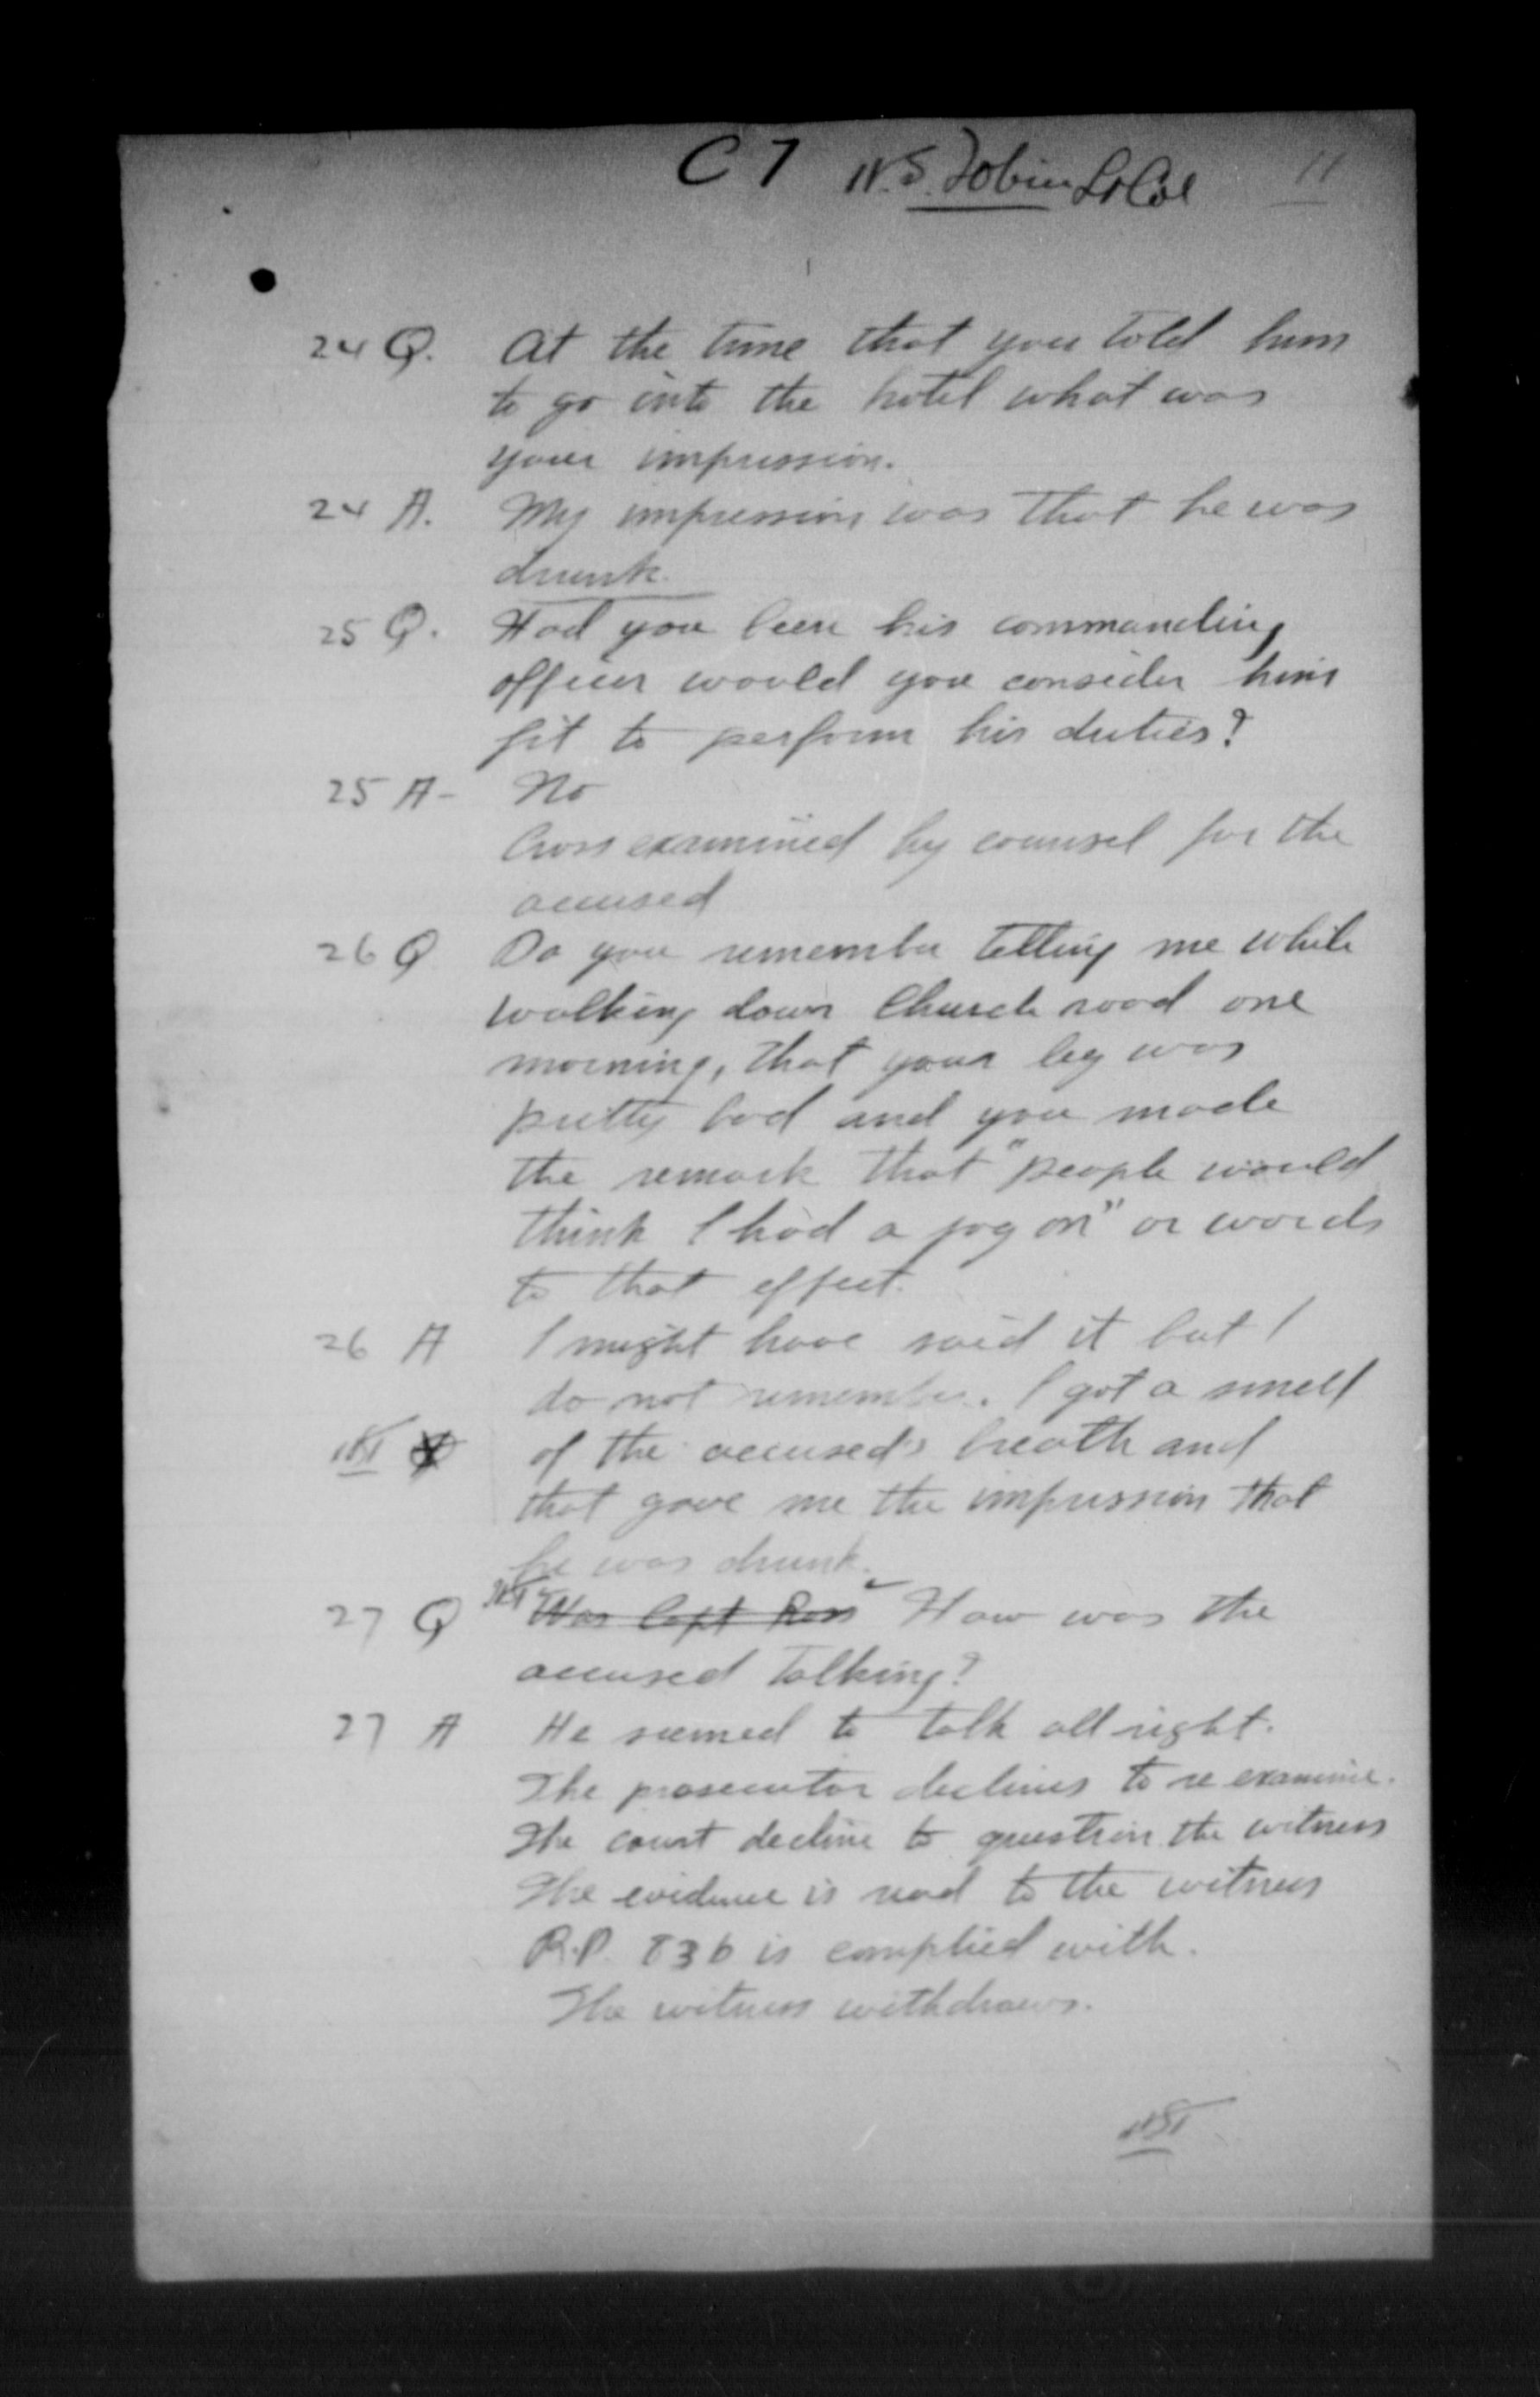 C7 H.S. Tobin Lt Col 11
24 Q. At the time that you told him
to go into the hotel what was
your impression.
24 A. My impression was that he was
drunk.
25 Q. Had you been his commanding
officer would you consider him
fit to perform his duties?
25 A- No
Cross examined by counsel for the
accused
26 Q Do you remember telling me while
walking down Church road one
morning, that your leg was
pretty bad and you made
the remark that "people would
think I had a jag on" or words
to that effect.
26 A I might have said it but I
do not remember. I got a smell
HST of the accused's breath and
that gave me the impression that
he was drunk.
27 Q HST Was Capt Ross How was the
accused talking?
27 A He seemed to talk all right.
The prosecutor declines to re examine.
The court decline to question the witness
The evidence is read to the witness
R.P. 83b is complied with.
The witness withdraws.
HST